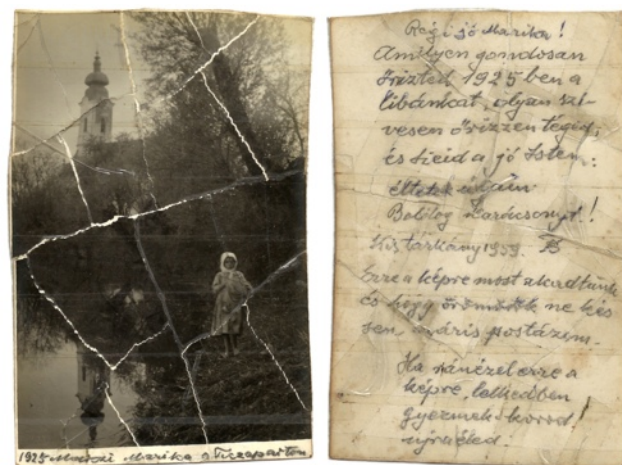 1925 Marika a Tiszaparton
Régi jó Marika!
Amilyen gondosan
őrizted 1925 ben a
libánkat, olyan szí-
vesen őrizzen téged,
és a jó Isten:
éltetek útján
Boldog Karácsonyt!
Kistárkány 1959.
Erre a képre most akadtunk
és hogy örömötök ne kés
sen máris postázom.
Ha ránézel erre a
képre, lelkedben
gyermek-korod
újraéled.